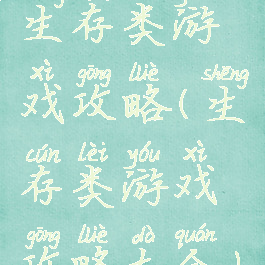 生存类游
xì gōng lüè shēng
戏攻略(生
cún lèi yóu xì
存类游戏
gōng lüè dà quán
攻略大全)